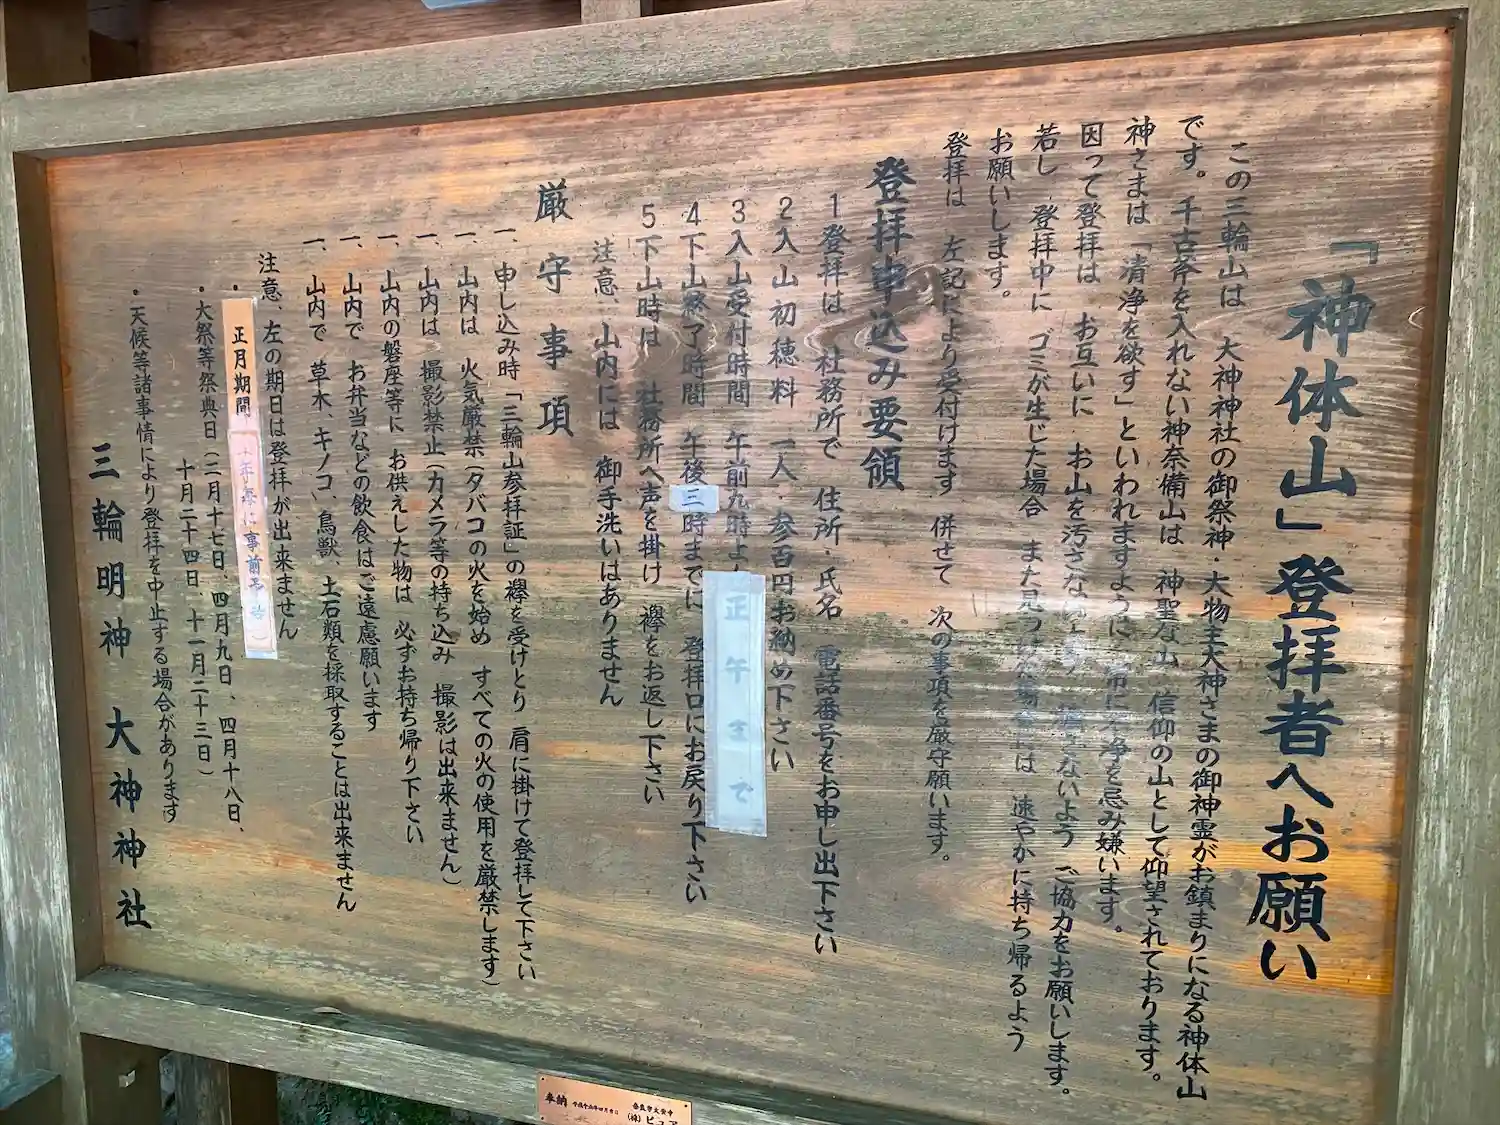 「神体山」登拝者へお願い
この三輪山は 大神神社の御祭神・大物主大神さまの御神霊がお鎮まりになる神体山
です。千古斧を入れない神奈備山は 神聖な山、信仰の山として仰望されております。
神さまは「清浄を欲す」といわれますように 不浄を忌み嫌います。
因って登拝は お互いに お山を汚さない ないよう ご協力をお願いします。
若し 登拝中に ゴミが生じた場合 また見つけた場合には 速やかに持ち帰るよう
お願いします。
登拝は 左記により受付けます 併せて 次の事項を厳守願います。
登拝申込み要領
1 登拝は 社務所で 住所・氏名 電話番号をお申し出下さい
2 入山初穂料 一人・参百円お納め下さい
3 入山受付時間 午前九時より 正午まで
4 下山終了時間 午後三時までに 登拝口にお戻り下さい
5 下山時は 社務所へ声を掛け 襷をお返し下さい
注意、山内には 御手洗いはありません
厳守事項
一、申し込み時「三輪山参拝証」の襷を受けとり 肩に掛けて登拝して下さい
一、山内は 火気厳禁(タバコの火を始め すべての火の使用を厳禁します)
一、山内は 撮影禁止(カメラ等の持ち込み 撮影は出来ません)
一、山内の磐座等に お供えした物は 必ずお持ち帰り下さい
一、山内で お弁当などの飲食はご遠慮願います
一、山内で 草木、キノコ、鳥獣、土石類を採取することは出来ません
注意、左の期日は登拝が出来ません
・正月期間
・大祭等祭典日(二月十七日、四月九日、四月十八日、
十月二十四日、十一月二十三日)
・天候等諸事情により登拝を中止する場合があります
三輪明神 大神神社
奉納
(株)ピュア